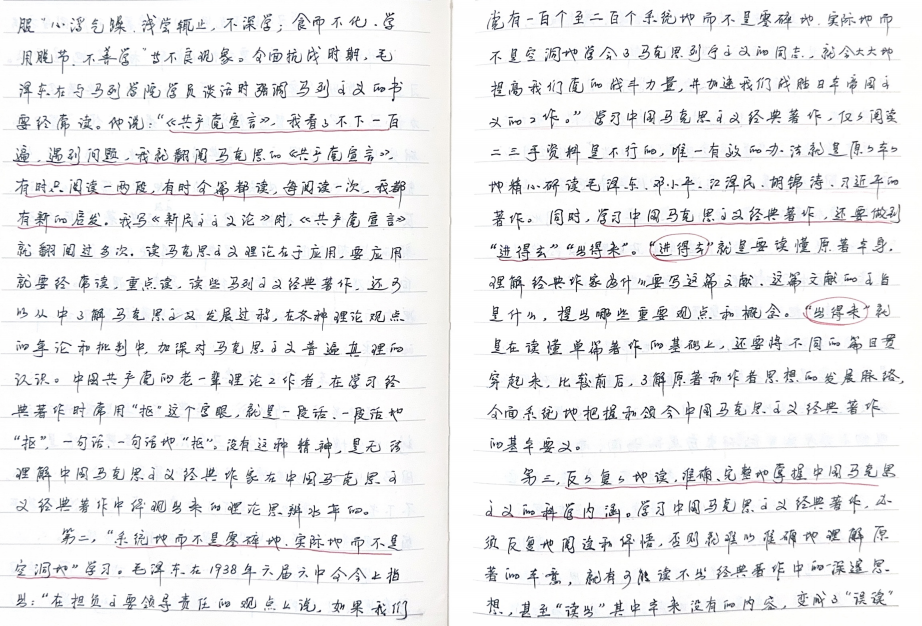 服"心浮气躁、浅尝辄止，不深学；食而不化、学
用脱节，不善学"等不良现象。全面抗战时期，毛
泽东在与马列学院学员谈话时强调马列主义的书
要经常读。他说："《共产党宣言》，我看了不下一百
遍，遇到问题，我就翻阅马克思的《共产党宣言》，
有时只阅读一两段，有时全篇都读，每阅读一次，我都
有新的启发。我写《新民主主义论》时，《共产党宣言》
就翻阅过多次。读马克思主义理论在于应用，要应用
就要经常读，重点读，读些马列主义经典著作，还可
以从中了解马克思主义发展过程，在各种理论观点
的争论和批判中，加深对马克思主义普遍真理的
认识。中国共产党的老一辈理论工作者，在学习经
典著作时常用"抠"这个字眼，就是一段话、一段话地
"抠"，一句话、一句话地"抠"。没有这种精神，是无法
理解中国马克思主义经典作家在中国马克思主
义经典著作中体现出来的理论思辨水平的。
第二，"系统地而不是零碎地、实际地而不是
空洞地"学习。毛泽东在1938年六届六中全会上指
出："在担负主要领导责任的观点上说，如果我们
党有一百个至二百个系统地而不是零碎地、实际地而
不是空洞地学会了马克思列宁主义的同志，就会大大地
提高我们党的战斗力量，并加速我们战胜日本帝国主
义的工作。"学习中国马克思主义经典著作，仅仅阅读
二三手资料是不行的，唯一有效的办法就是原原本本
地精心研读毛泽东、邓小平、江泽民、胡锦涛、习近平的
著作。同时，学习中国马克思主义经典著作，还要做到
"进得去""出得来"。"进得去"就是要读懂原著本身，
理解经典作家为什么要写这篇文献、这篇文献的主旨
是什么，提出哪些重要观点和概念。"出得来"就
是在读懂单篇著作的基础上，还要将不同的篇目贯
穿起来，比较前后，了解原著和作者思想的发展脉络，
全面系统地把握和领会中国马克思主义经典著作
的基本要义。
第三，反反复复地读，准确、完整地掌握中国马克思
主义的科学内涵。学习中国马克思主义经典著作，必
须反复地阅读和体悟，否则就难以准确地理解原
著的本意，就有可能读不出经典著作中的深邃思
想，甚至"读出"其中本来没有的内容，变成了"误读"